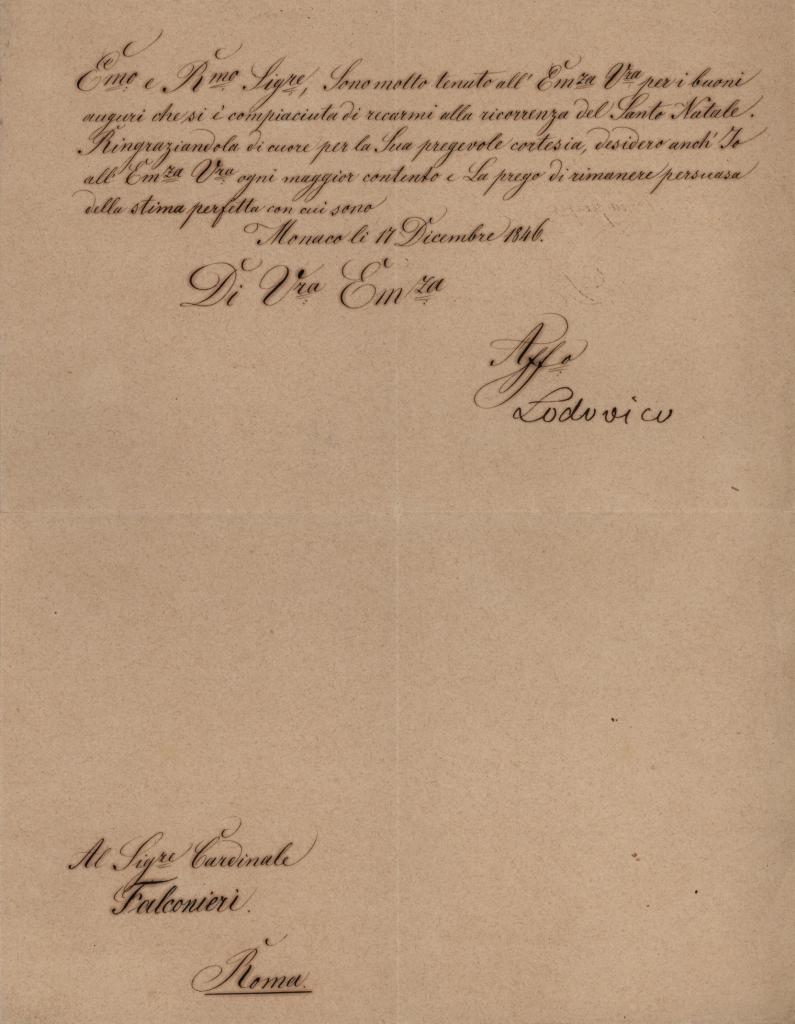 Emo e Rmo Sigre, Sono molto tenuto all' Emza Vra per i buoni
auguri che si è compiaciuta di recarmi alla ricorrenza del Santo Natale.
Ringraziandola di cuore per la Sua pregevole cortesia, desidero anch' Io
all' Emza Vra ogni maggior contento e La prego di rimanere persuasa
della stima perfetta con cui sono
Monaco li 17 Dicembre 1846.
Di Vra Emza
Affo
Lodovico
Al Sigre Cardinale
Falconieri.
Roma.